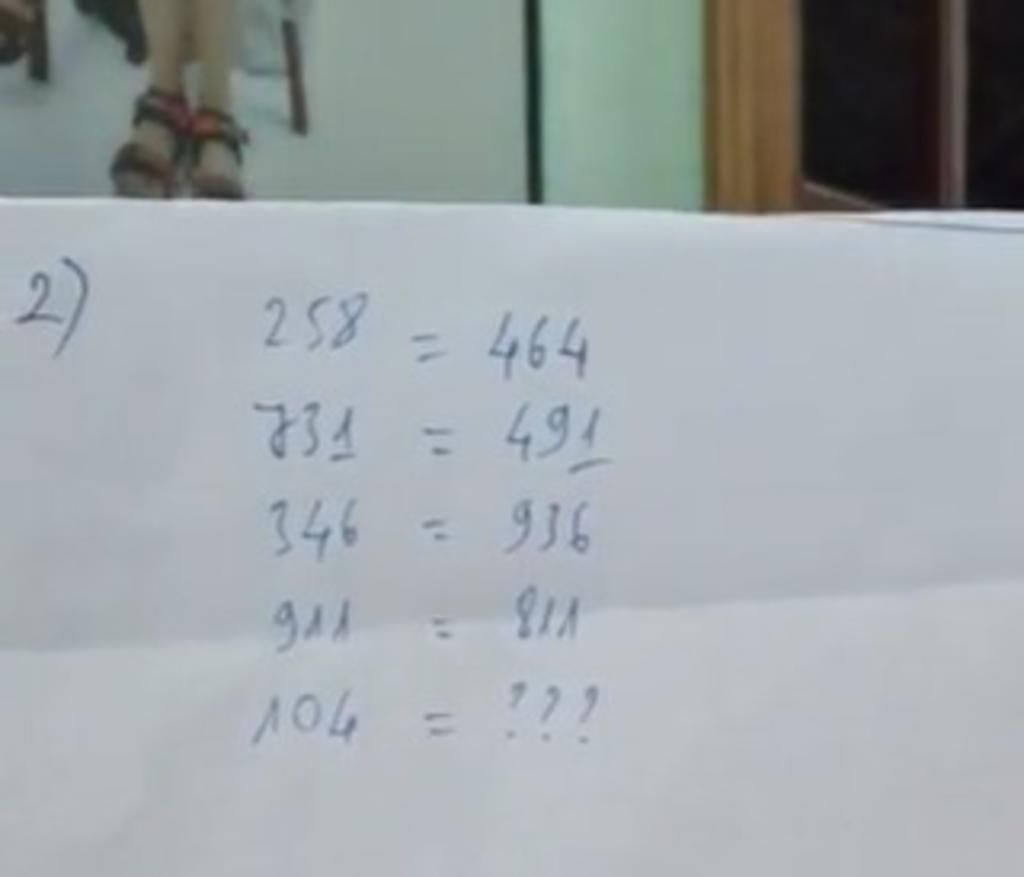 2)
258 = 464
731 = 491
346 = 936
911 = 811
104 = ???